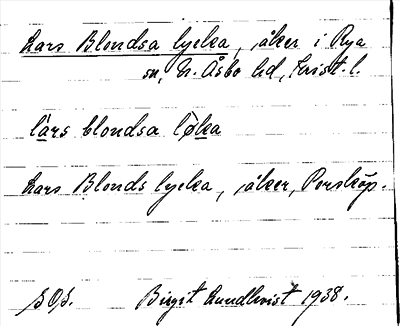 Lars Blondsa lycka, åker i Rya
sn, N. Åsbo hd, Krist. l.
lars blondsa løka
Lars Blonds lycka, åker, Porsköp.
SOS.
Birgit Lundkvist 1938.